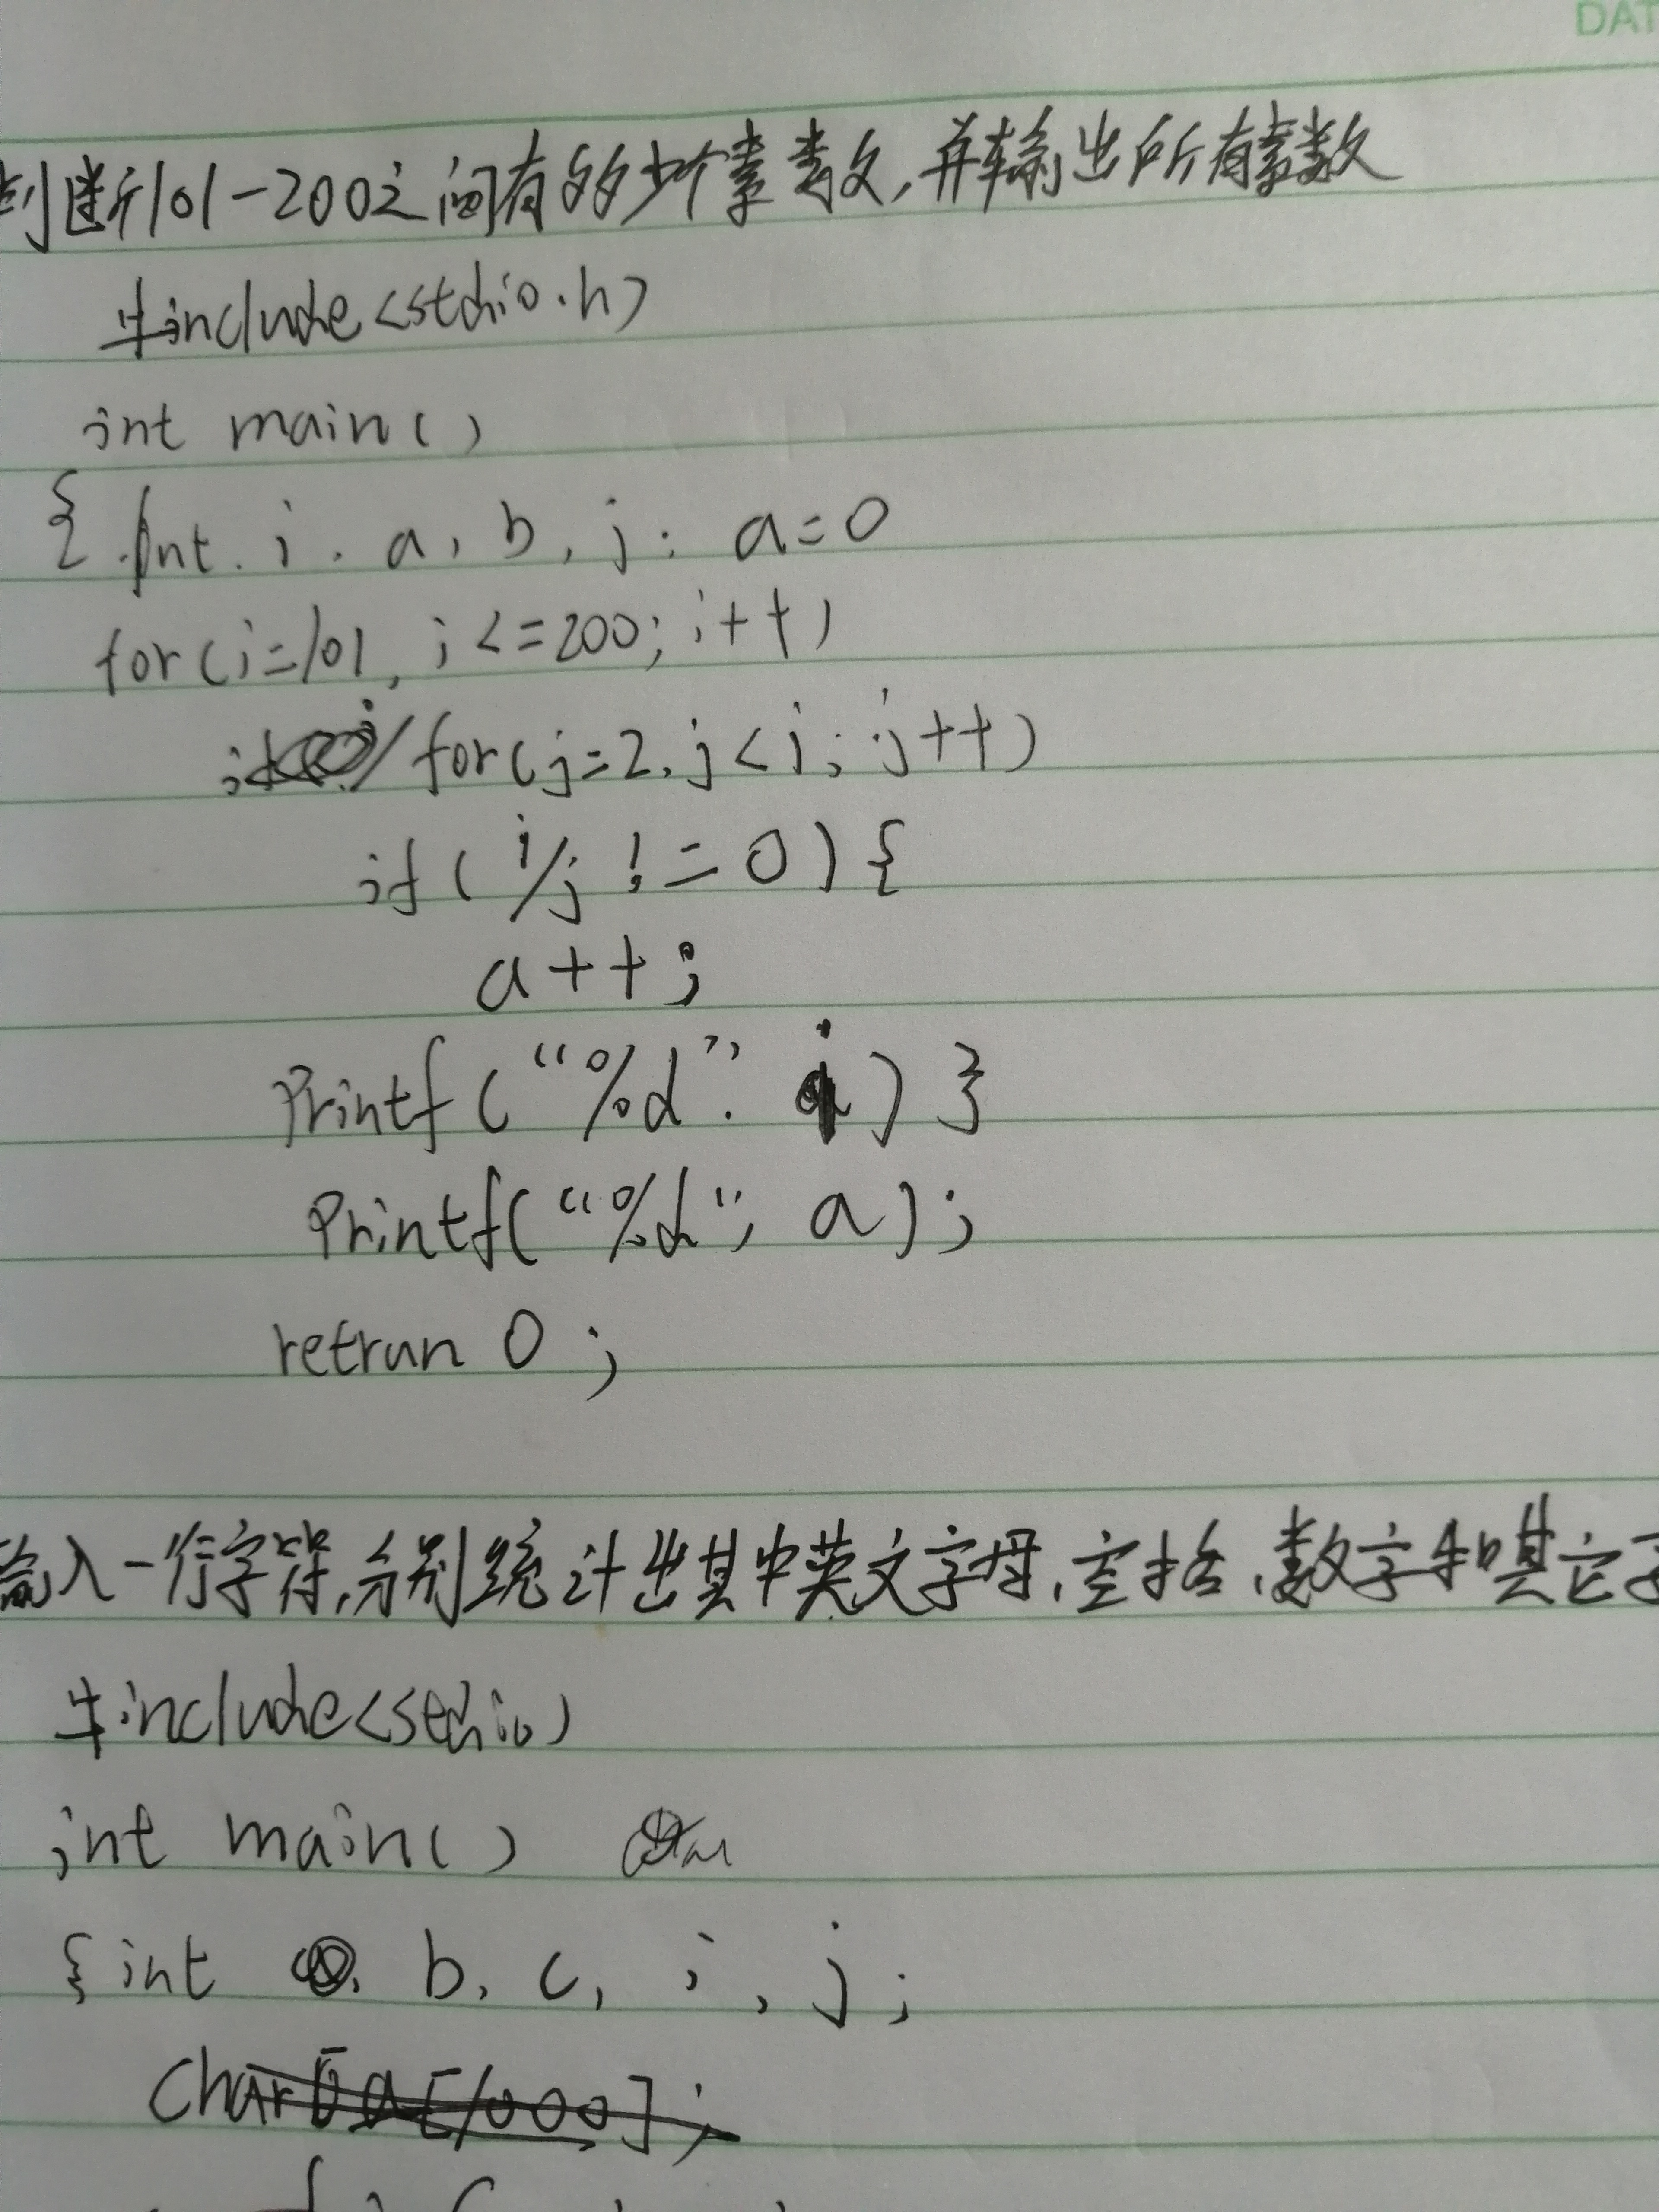 DAT
判断101-200之间有多少个素数,并输出所有素数
#include<stdio.h>
int main()
{ int. i. a, b, j; a=0
for(i=101, i<=200; i++)
for(j=2, j<i; j++)
if( i/j !=0){
a++;
Printf("%d". i) }
Printf("%d", a);
retrun 0;
输入一行字符,分别统计出其中英文字母,空格,数字和其它字
#include<stdio>
int main()
{int b, c, i, j;
char a[1000];